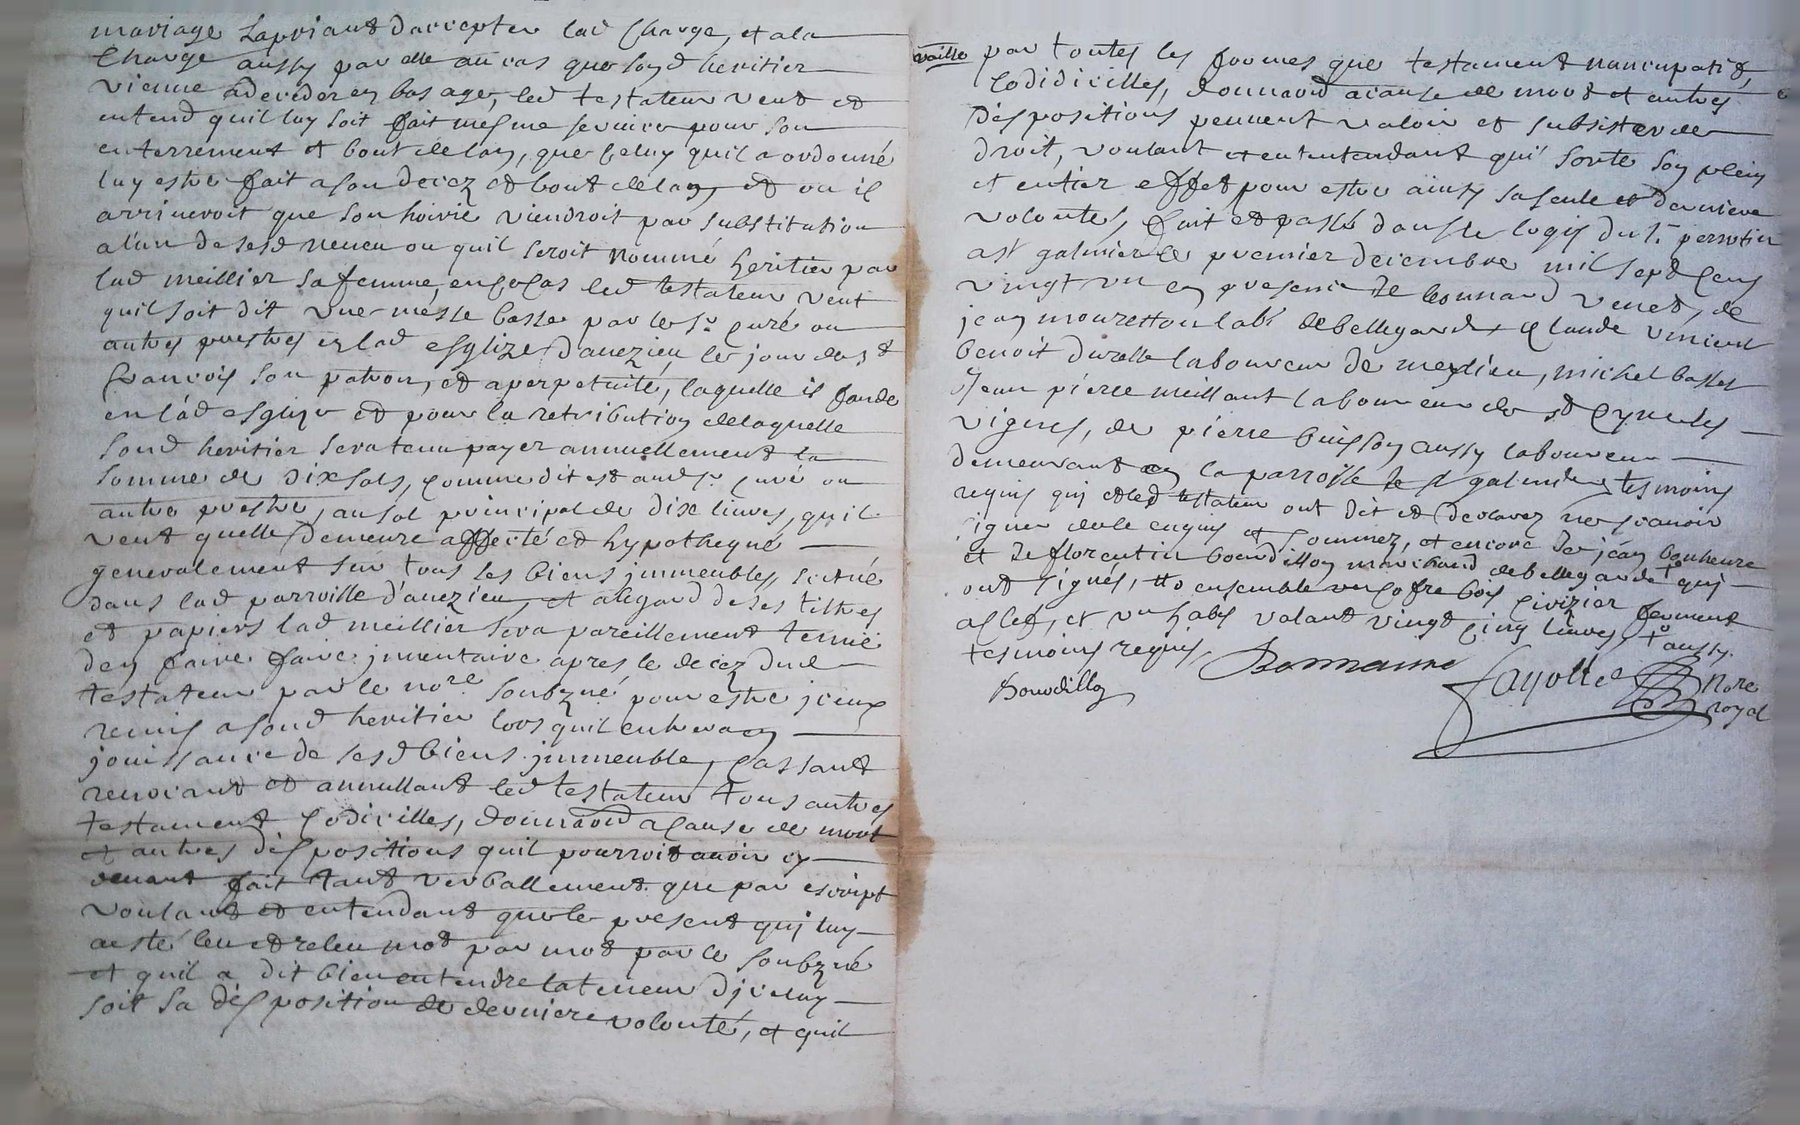 mariage La priant d'accepter lad charge, et a la
Charge aussy par elle au cas que sond heritier
vienne a deceder en bas age, led testateur veut et
entend quil luy soit fait mesme service pour son
enterrement et bout de lan, que celuy quil a ordonné
luy estre fait a son decez et bout de lan, et ou il
arriveroit que son hoirie viendroit par substitution
a l'un de sesd neveu ou quil seroit nommé heritier par
lad meillier sa femme, en ce cas led testateur veut
quil soit dit une messe basse par le sr curé ou
autres prestres en lad esglize d'avezieu le jour de st
françois son patron, et a perpetuité, laquelle il fonde
en lad esglize et pour la retribution de laquelle
sond heritier sera tenu payer annuellement la
somme de dix sols, comme dit est aud sr curé ou
autre prestre, au sol principal de dix livres, quil
veut quelle demeure affecté et hypothequé
generalement sur tous les biens immeubles, scitué
dans lad parroisse d'avezieu, et a l'egard de ses tiltres
et papiers lad meillier sera pareillement tenue
den faire faire inventaire apres le decez dud
testateur par le nore soubzné pour estre iceux
remis a sond heritier lors quil entrera en
jouissance de sesd biens immeuble, Cassant
revocant et annullant led testateur tous autres
testament Codicilles, donnaõn a cause de mort
et autres dispositions quil pourroit avoir cy
devant fait tant verballement que par escript
voulant et entendant que le present qui luy
a esté leu et releu mot par mot par le soubzné
et quil a dit bien entendre la teneur d'jceluy
soit sa disposition de derniere volonté, et quil
vaille par toutes les formes que testament nuncupatif,
Codidicilles, donnaõn a cause de mort et autres
dispositions peuvent valoir et subsister de
droit, voulant et ententendant qui sorte son plein
et entier effet pour estre ainsy sa seule et derniere
volontés, fait et passé dans le logis du sr perrotin
a st galmier le premier decembre mil sept cens
vingt un en presence de leonnard venet, de
jean mouretton labr de bellegarde claude vincent
benoit durelle laboureur de meylieu, michel basset
Jean pierre meillant laboureur de st Cyr les
vignes, de pierre buisson aussy laboureur
demeurant en la parroisse de st galmier tesmoins
requis qui et led testateur ont dit et declarez ne scavoir
signer de ce enquis et sommez, et encore de jean bonheure
et de florentin bourdillon marchand de bellegarde + qui
ont signés, + ensemble un cofre bois cerizier fermant
a clef, et un habit valant vingt cinq livres, + aussy
tesmoins requis.
Bonnaure
Bourdillon
fayolle
Nore
royal